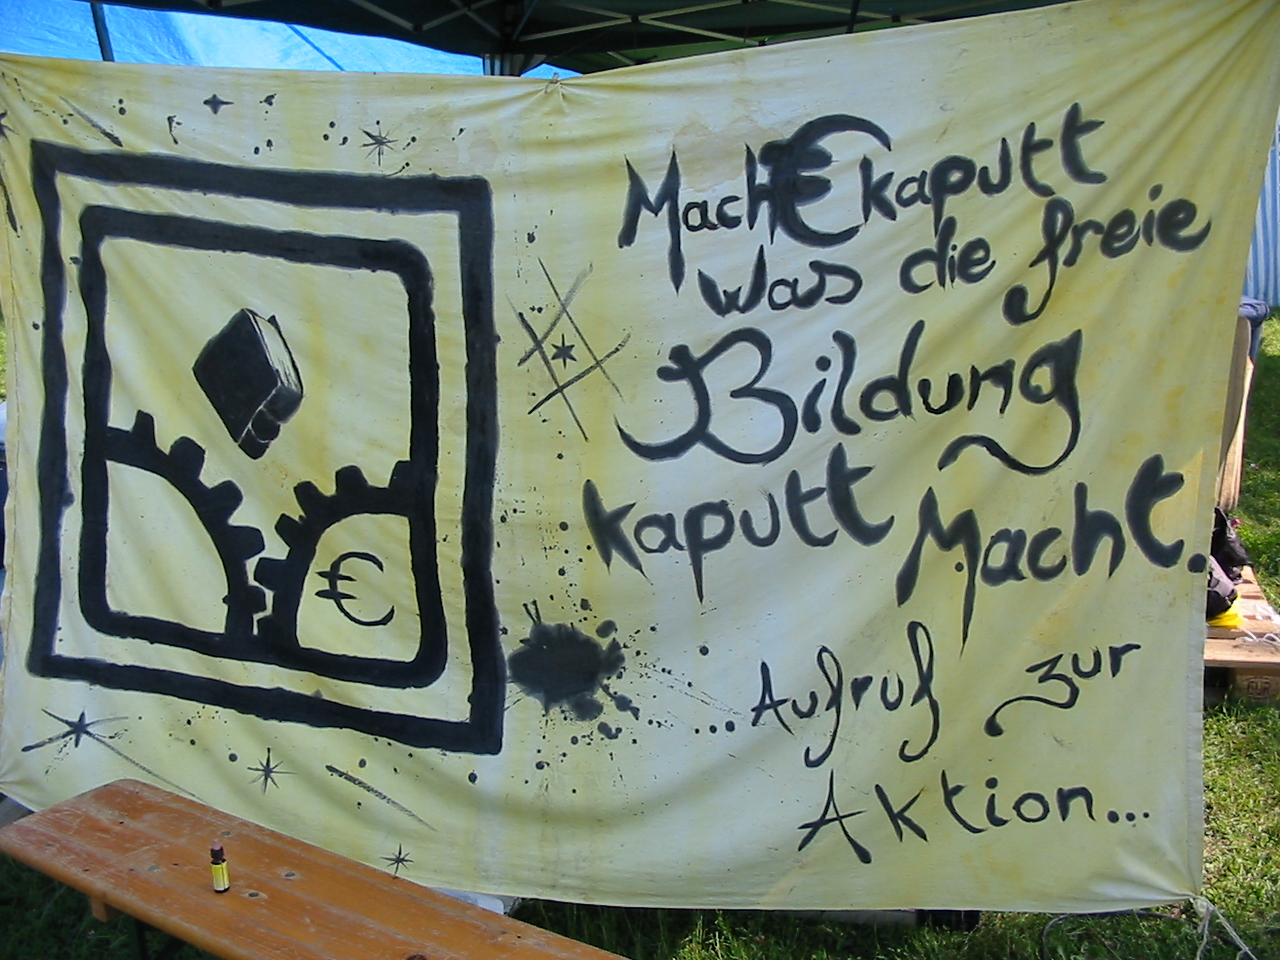 Mach€ kaputt
was die freie
Bildung
kaputt Macht.
...Aufruf zur
Aktion...
€